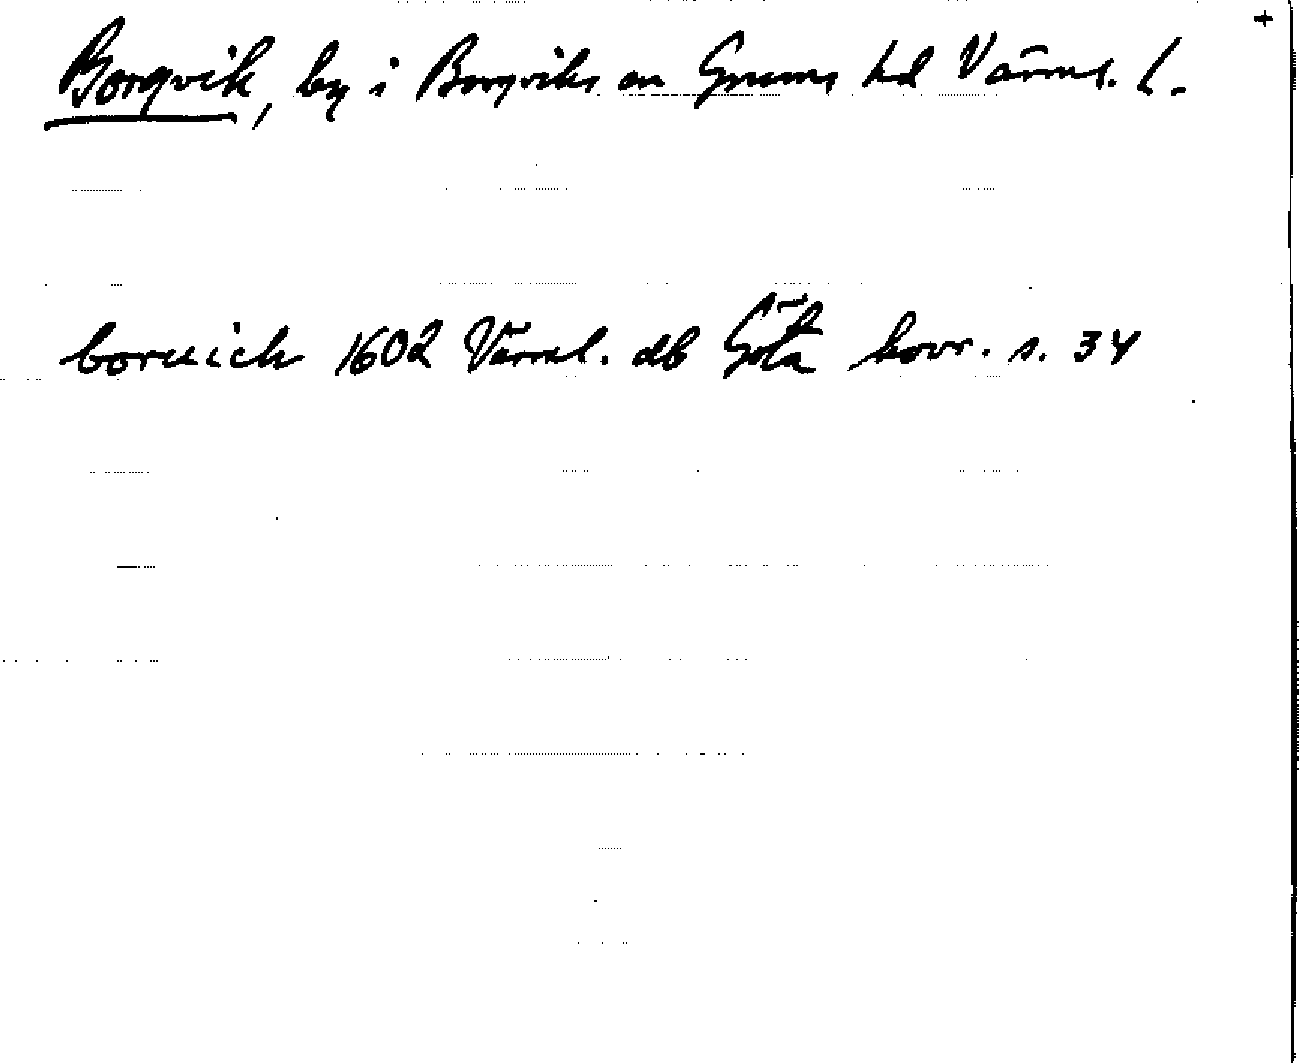 +
Borgvik, by i Borgviks sn Grums hd Värml. l.
boruich 1602 Värml. db Göta hovr. s. 34